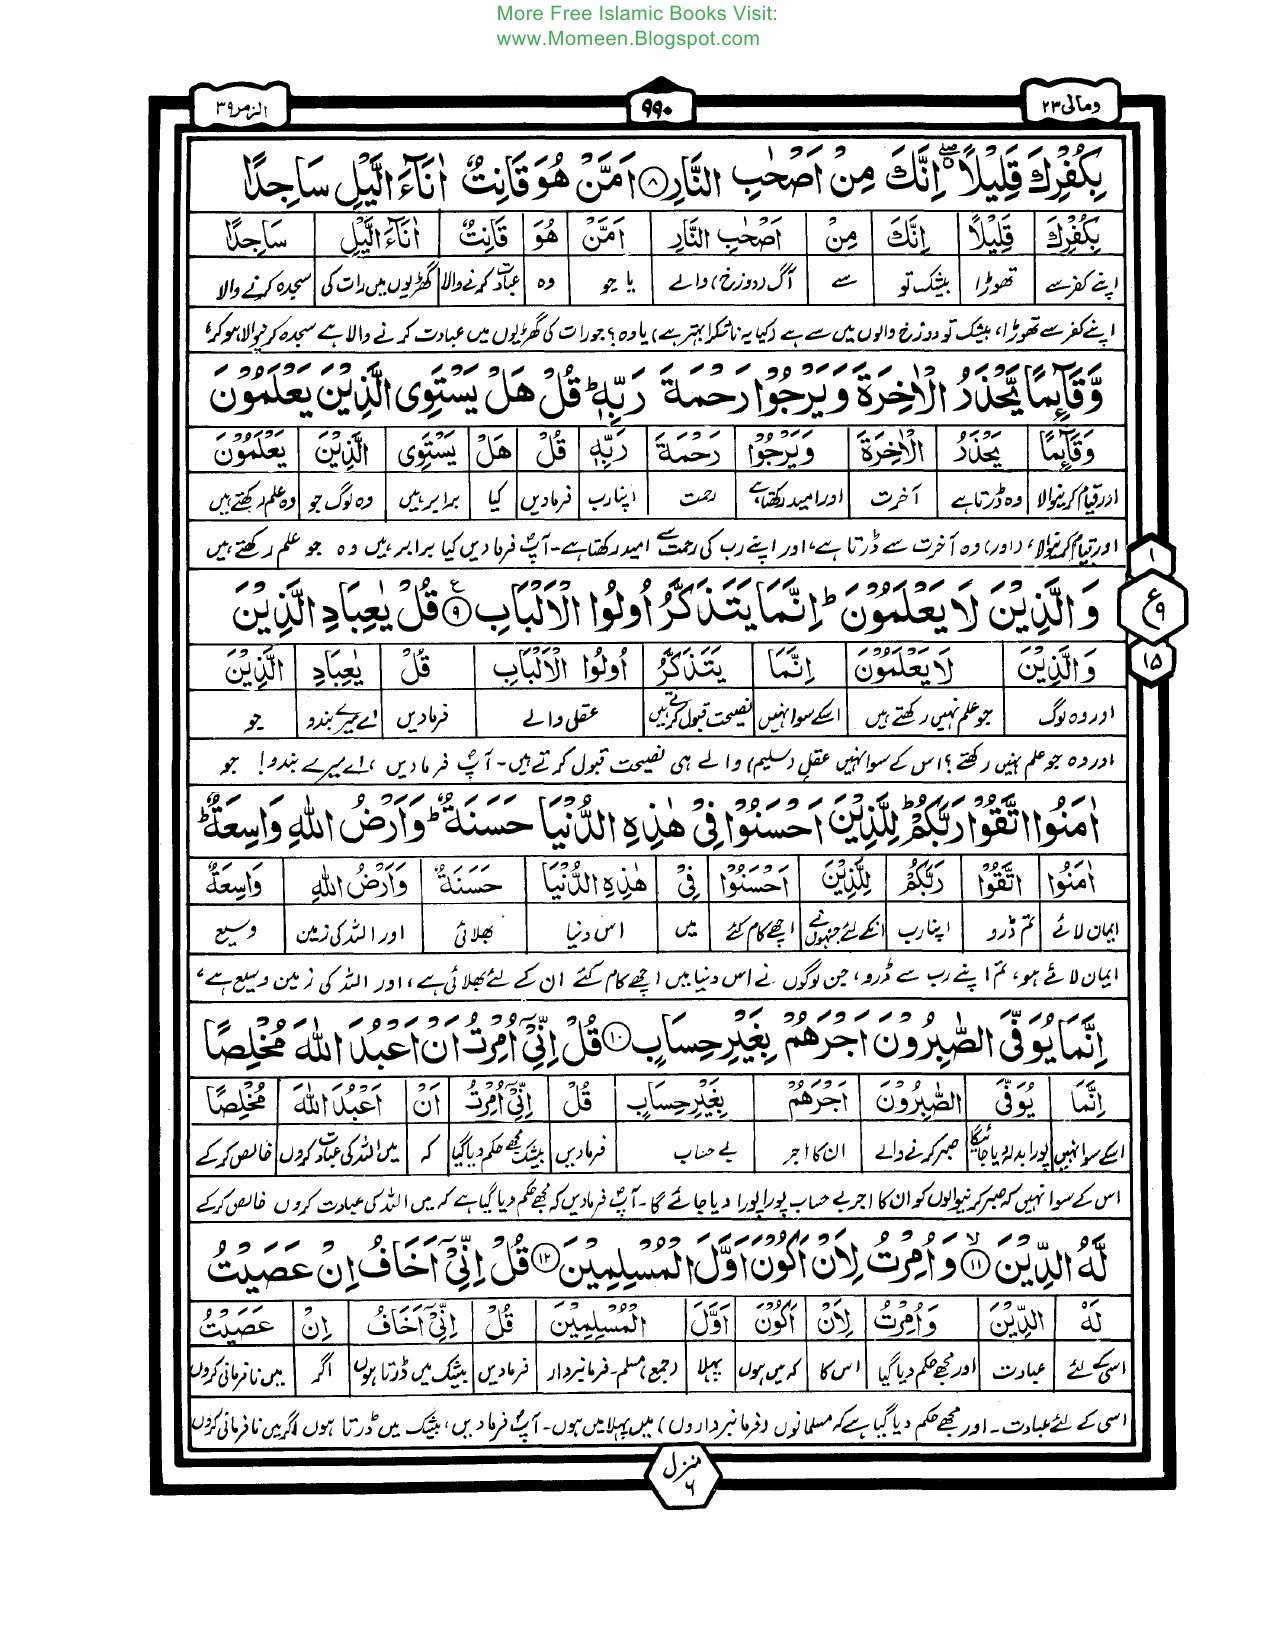 More Free Islamic Books Visit:
www.Momeen.Blogspot.com
ومالی ٢٣
٩٩٠
الزمر ٣٩
بِكُفْرِكَ قَلِيْلًا ۖ اِنَّكَ مِنْ اَصْحٰبِ النَّارِ ﴿٨﴾ اَمَّنْ هُوَ قَانِتٌ اٰنَآءَ الَّيْلِ سَاجِدًا
بِكُفْرِكَ قَلِيْلًا اِنَّكَ مِنْ اَصْحٰبِ النَّارِ اَمَّنْ هُوَ قَانِتٌ اٰنَآءَ الَّيْلِ سَاجِدًا
اپنے کفر سے تھوڑا بیشک تو سے آگ (دوزخ) والے یا جو وہ عبادت کرنے والا گھڑیوں میں رات کی سجدہ کرنے والا
اپنے کفر سے تھوڑا، بیشک تو دوزخ والوں میں سے ہے (کیا یہ ناشکرا بہتر ہے) یا وہ؟ جو رات کی گھڑیوں میں عبادت کرنے والا ہے سجدہ کرنیوالا ہو کر،
وَّقَآئِمًا يَّحْذَرُ الْاٰخِرَةَ وَيَرْجُوْا رَحْمَةَ رَبِّهٖ ؕ قُلْ هَلْ يَسْتَوِى الَّذِيْنَ يَعْلَمُوْنَ
وَقَآئِمًا يَحْذَرُ الْاٰخِرَةَ وَيَرْجُوْا رَحْمَةَ رَبِّهٖ قُلْ هَلْ يَسْتَوِى الَّذِيْنَ يَعْلَمُوْنَ
اور قیام کرنیوالا وہ ڈرتا ہے آخرت اور امید رکھتا ہے رحمت اپنا رب فرمادیں کیا برابر ہیں وہ لوگ جو وہ علم رکھتے ہیں
اور قیام کرنیوالا، (اور) وہ آخرت سے ڈرتا ہے، اور اپنے رب کی رحمت سے امید رکھتا ہے۔ آپؐ فرمادیں کیا برابر ہیں وہ جو علم رکھتے ہیں
١
ع ٩
١٥
وَالَّذِيْنَ لَا يَعْلَمُوْنَ ؕ اِنَّمَا يَتَذَكَّرُ اُولُوا الْاَلْبَابِ ﴿٩﴾ ع قُلْ يٰعِبَادِ الَّذِيْنَ
وَالَّذِيْنَ لَا يَعْلَمُوْنَ اِنَّمَا يَتَذَكَّرُ اُولُوا الْاَلْبَابِ قُلْ يٰعِبَادِ الَّذِيْنَ
اور وہ لوگ جو علم نہیں رکھتے ہیں اسکے سوا نہیں نصیحت قبول کرتے ہیں عقل والے فرمادیں اے میرے بندو جو
اور وہ جو علم نہیں رکھتے؟ اس کے سوا نہیں عقل (سلیم) والے ہی نصیحت قبول کرتے ہیں۔ آپؐ فرمادیں، اے میرے بندو! جو
اٰمَنُوا اتَّقُوْا رَبَّكُمْ ؕ لِلَّذِيْنَ اَحْسَنُوْا فِىْ هٰذِهِ الدُّنْيَا حَسَنَةٌ ؕ وَاَرْضُ اللّٰهِ وَاسِعَةٌ ؕ
اٰمَنُوْا اتَّقُوْا رَبَّكُمْ لِلَّذِيْنَ اَحْسَنُوْا فِىْ هٰذِهِ الدُّنْيَا حَسَنَةٌ وَاَرْضُ اللّٰهِ وَاسِعَةٌ
ایمان لائے تم ڈرو اپنا رب انکے لئے جنہوں نے اچھے کام کئے میں اس دنیا بھلائی اور اللہ کی زمین وسیع
ایمان لائے ہو، تم اپنے رب سے ڈرو، جن لوگوں نے اس دنیا میں اچھے کام کئے ان کے لئے بھلائی ہے، اور اللہ کی زمین وسیع ہے،
اِنَّمَا يُوَفَّى الصّٰبِرُوْنَ اَجْرَهُمْ بِغَيْرِ حِسَابٍ ﴿١٠﴾ قُلْ اِنِّىْٓ اُمِرْتُ اَنْ اَعْبُدَ اللّٰهَ مُخْلِصًا
اِنَّمَا يُوَفَّى الصّٰبِرُوْنَ اَجْرَهُمْ بِغَيْرِ حِسَابٍ قُلْ اِنِّىْٓ اُمِرْتُ اَنْ اَعْبُدَ اللّٰهَ مُخْلِصًا
اسکے سوا نہیں پورا بدلہ دیا جائیگا صبر کرنے والے ان کا اجر بے حساب فرمادیں بیشک مجھے حکم دیا گیا کہ میں اللہ کی عبادت کروں خالص کر کے
اس کے سوا نہیں کہ صبر کرنیوالوں کو ان کا اجر بے حساب پورا پورا دیا جائے گا۔ آپؐ فرمادیں کہ مجھے حکم دیا گیا ہے کہ میں اللہ کی عبادت کروں خالص کر کے
لَّهُ الدِّيْنَ ﴿١١﴾ ۙ وَاُمِرْتُ لِاَنْ اَكُوْنَ اَوَّلَ الْمُسْلِمِيْنَ ﴿١٢﴾ قُلْ اِنِّىْٓ اَخَافُ اِنْ عَصَيْتُ
لَهُ الدِّيْنَ وَاُمِرْتُ لِاَنْ اَكُوْنَ اَوَّلَ الْمُسْلِمِيْنَ قُلْ اِنِّىْٓ اَخَافُ اِنْ عَصَيْتُ
اسی کے لئے عبادت اور مجھے حکم دیا گیا اس کا کہ میں ہوں پہلا (جمع) مسلم۔ فرمانبردار فرمادیں بیشک میں ڈرتا ہوں اگر میں نافرمانی کروں
اسی کے لئے عبادت۔ اور مجھے حکم دیا گیا ہے کہ مسلمانوں (فرمانبرداروں) میں پہلا میں ہوں۔ آپؐ فرمادیں، بیشک میں ڈرتا ہوں اگر میں نافرمانی کروں
منزل ٦